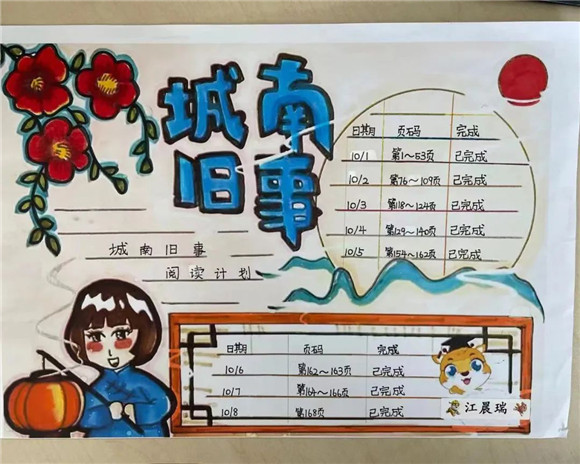 城南
旧事
城南旧事
阅读计划
日期 页码 完成
10/1 第1～53页 已完成
10/2 第76～109页 已完成
10/3 第18～124页 已完成
10/4 第129～140页 已完成
10/5 第154～162页 已完成
日期 页码 完成
10/6 第162～163页 已完成
10/7 第164～166页 已完成
10/8 第168页 已完成
江晨瑞